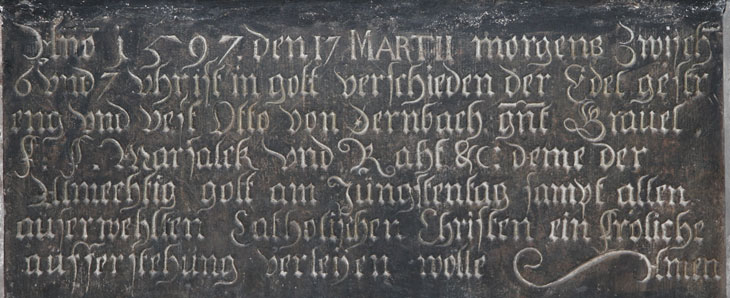 Ano 1597. den 17 MARTII morgens Zwisch
6 vnd 7 vhr ist in gott verschieden der Edel gestr
eng vnd vest Otto von Dernbach gnt Grauel
F. F. Marsalck vnd Raht &c: deme der
Almechtig gott am Jüngstentag sampt allen
auserwehlten Catholischen Christen ein fröliche
aufferstehung verleyen wolle Amen